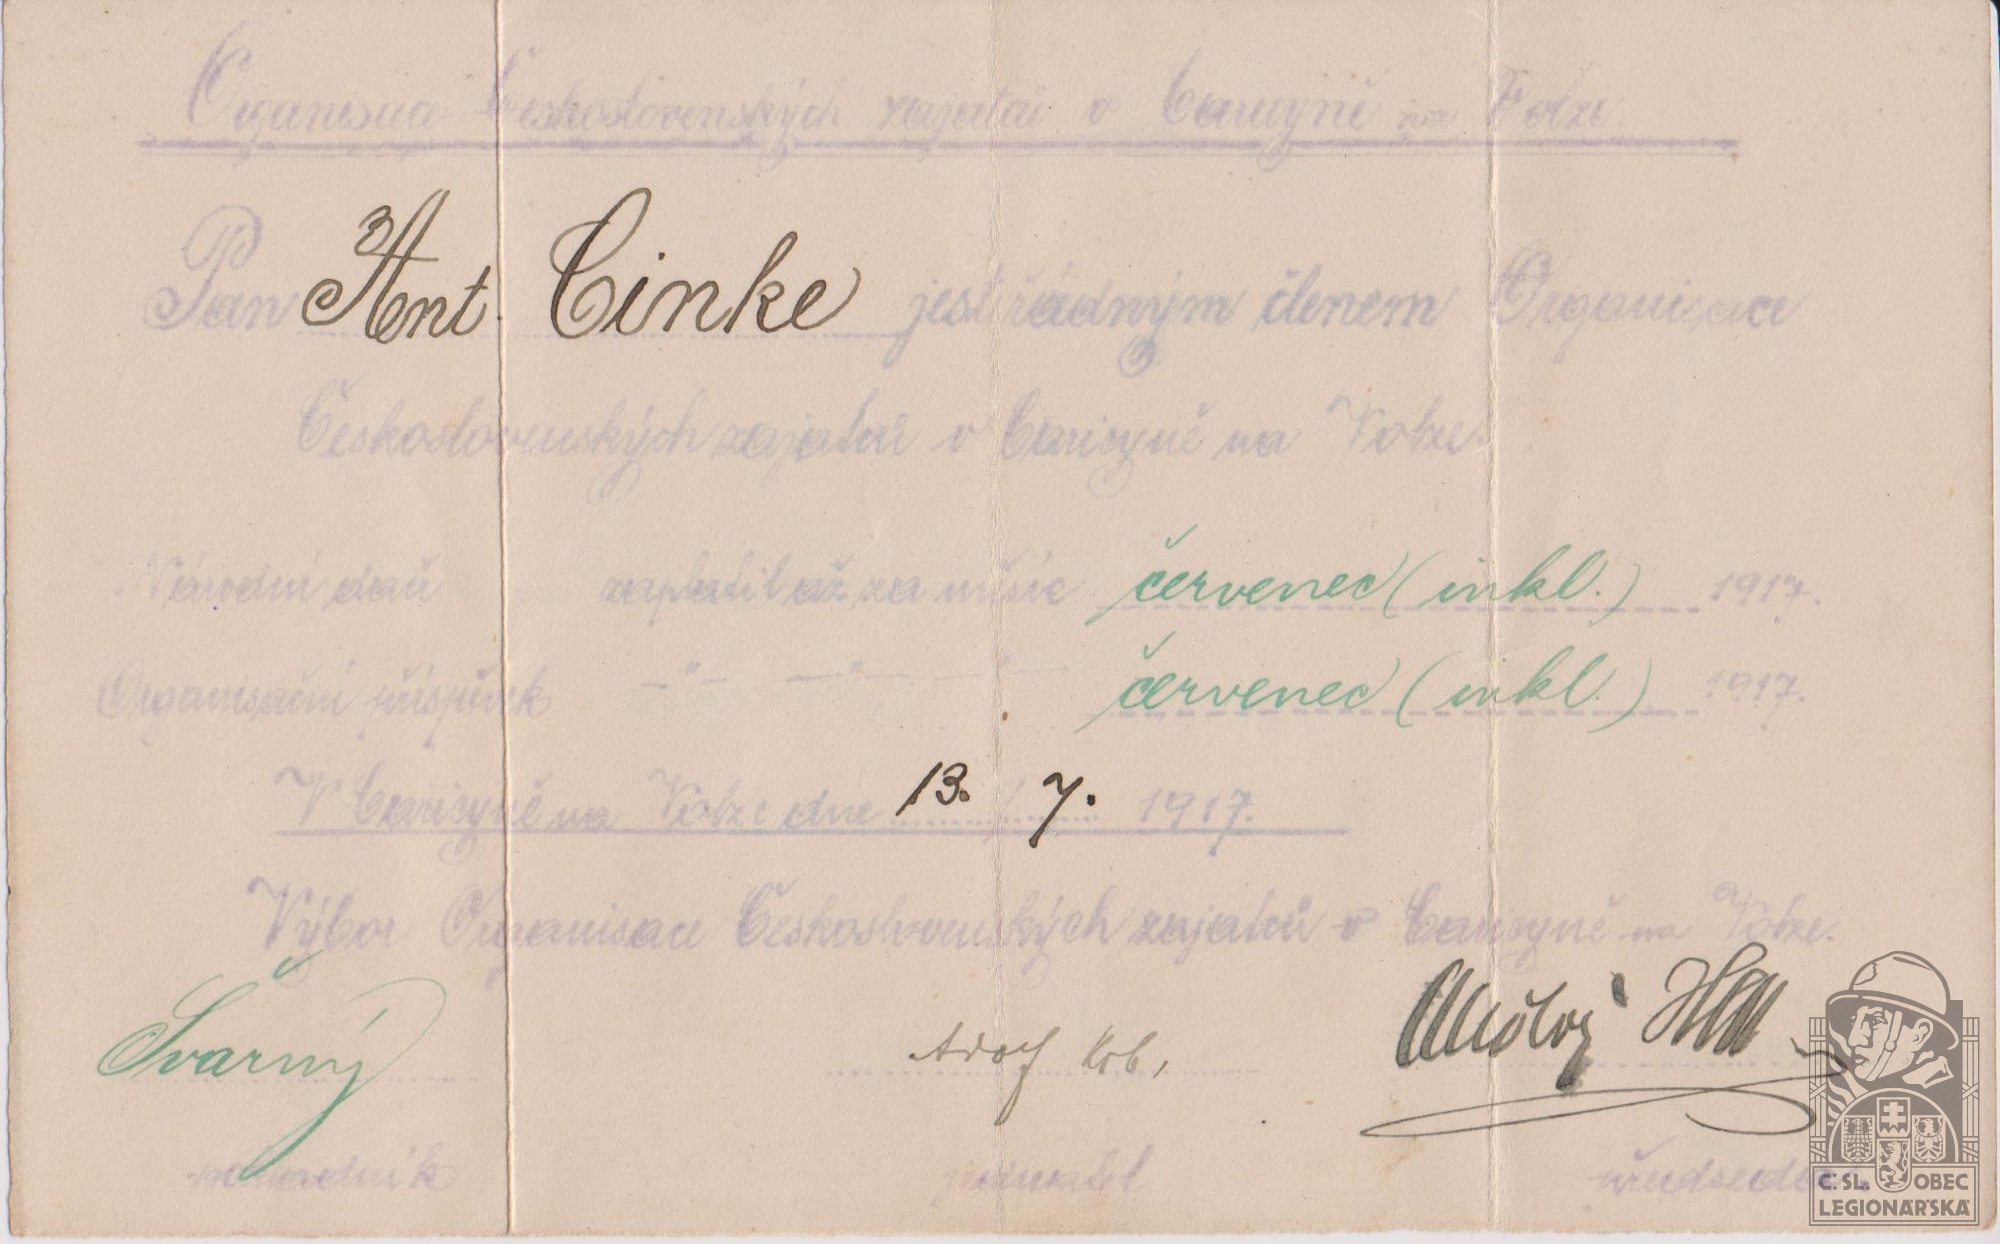 Organisace Československých zajatců v Caricyně na Volze
Pan Ant. Cinke jest řádným členem Organisace
Československých zajatců v Caricyně na Volze.
Národní daň zaplatil až za měsíc červenec (inkl.) 1917.
Organisační příspěvek —"— —"— —"— červenec (inkl.) 1917.
V Caricyně na Volze dne 13. 7. 1917.
Výbor Organisace Československých zajatců v Caricyně na Volze.
Švarný Adolf
pokladník jednatel předseda
Č. SL. OBEC
LEGIONÁŘSKÁ